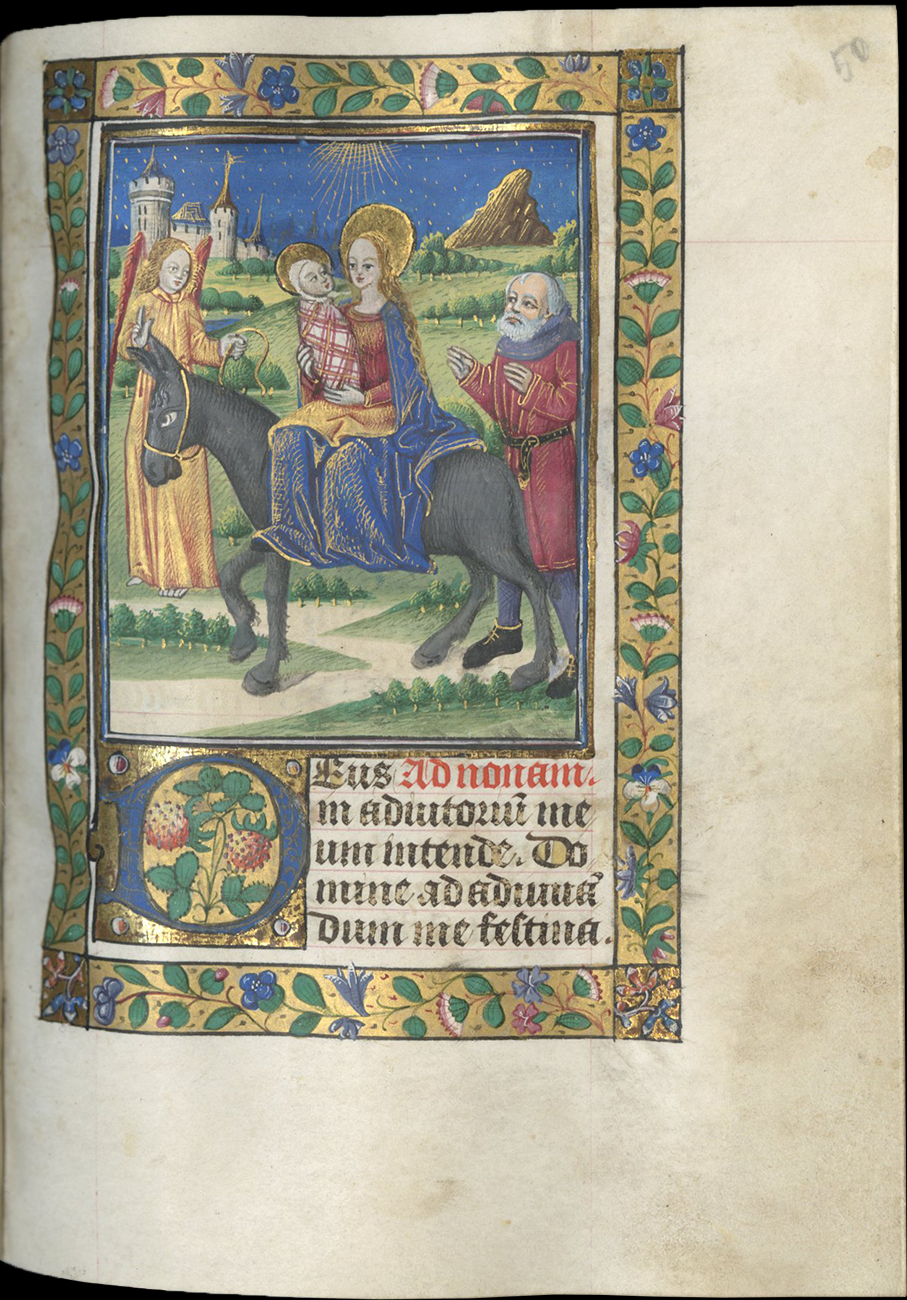 50
Deus Ad nonam.
in adiutoriū me
um intende. Do
mine ad adiuuā
dum me festina.